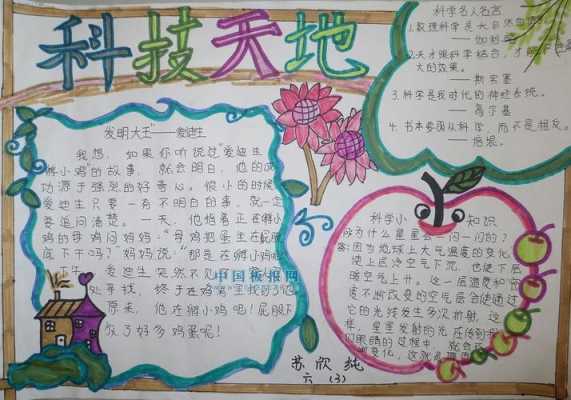 科技天地
发明大王"——爱迪生
我想，如果你听说过"爱迪生
孵小鸡"的故事，就会明白，他的成
功源于强烈的好奇心。很小的时候
爱迪生只要一有不明白的事，就一定
要追问清楚。一天，他指着正在孵小
鸡的母鸡问妈妈："母鸡把蛋坐在屁股
底下干吗？"妈妈说："那是在孵小鸡呢
午，爱迪生突然不见了，
处寻找，终于在鸡窝里找到了他
原来，他在孵小鸡呢！屁股下
放了好多鸡蛋呢！
中国板报网
科学名人名言
1.数理科学是大自然
——伽利略
2.天才跟科学结合，才
大的效果。
——斯宾塞
3.科学是我时代的神经系统。
——高尔基
4.书本要跟从科学，而不是相反。
——培根。
科学小知识
问为什么星星会一闪一闪的？
答：因为地球上大气温度的变化，
使上层冷空气下沉，也使下层
暖空气上升。这一层温度和密
度不断改变的空气层会使通过
它的光线发生多次折射，这
样，星星发射的光在传到我
们眼睛的过程中，就会
变化，这就是
苏欣纯
六（3）